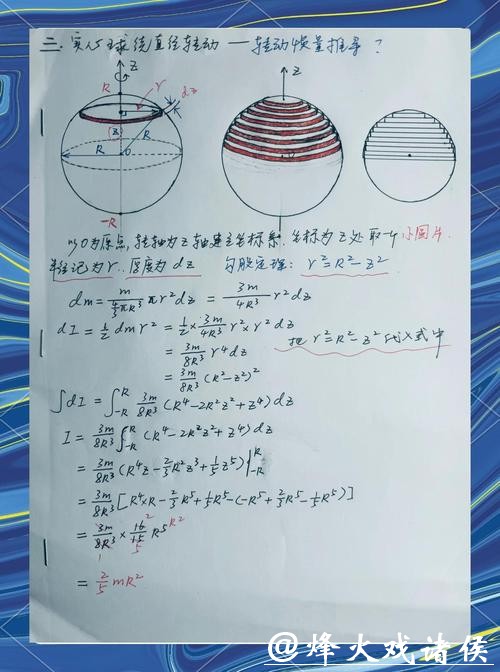 三.实心球绕直径转动——转动惯量推导?
z
R
r
dz
z
R
R
O
-R
z
以O为原点,转轴为z轴建立坐标系.坐标为z处取一个小圆片.
半径记为r.厚度为dz 勾股定理: r²=R²-z²
dm = m/(4/3 πR³) πr²dz = 3m/4R³ r²dz
dI = 1/2 dm r² = 1/2 × 3m/4R³ r² × r² dz
= 3m/8R³ r⁴ dz 把 r²=R²-z²代入式中
= 3m/8R³ (R²-z²)²
∫dI = ∫_{-R}^{R} 3m/8R³ (R⁴-2R²z²+z⁴)dz
I = 3m/8R³ ∫_{-R}^{R} (R⁴-2R²z²+z⁴)dz
= 3m/8R³ (R⁴z - 2/3 R²z³ + 1/5 z⁵)|_{-R}^{R}
= 3m/8R³ [R⁴×R - 2/3 R⁵ + 1/5 R⁵ - (-R⁵ + 2/3 R⁵ - 1/5 R⁵)]
= 3m/8R³ × 16/15 R⁵
1 2 5 R²
= 2/5 mR²
@烽火戏诸侯